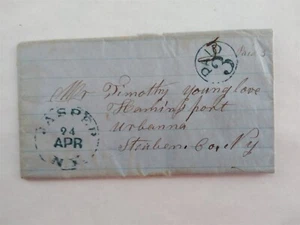 PAID
3
Paid 3
Mr Timothy Younglove
Hamins port
Urbanna
Steuben Co. Ny
JASPER
24
APR
N.Y.